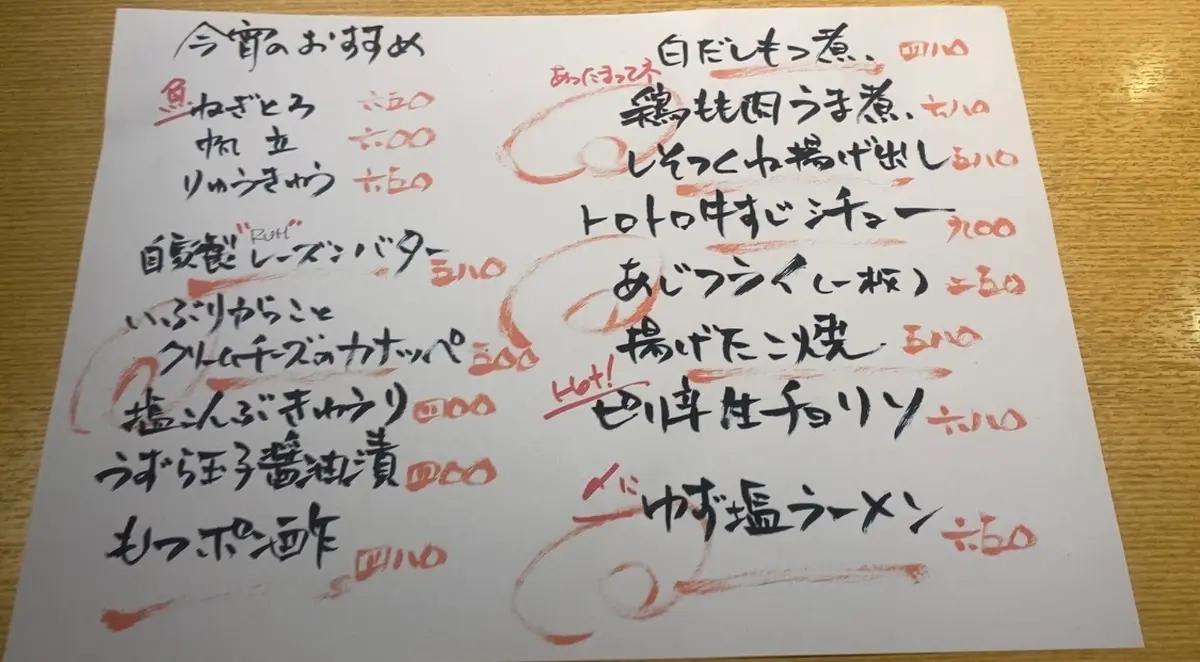 今宵のおすすめ
魚 ねぎとろ 六五〇
帆立 六〇〇
りゅうきゅう 六五〇
自家製"RUM"レーズンバター 五八〇
いぶりがらこと
クリームチーズのカナッペ 五〇〇
塩こんぶきゅうり 四〇〇
うずら玉子醤油漬 四〇〇
もつポン酢 四八〇
白だしもつ煮、 四八〇
あったまってネ
鶏もも肉うま煮、 六八〇
しそつくね揚げ出し 五八〇
トロトロ牛すじシチュー 九〇〇
あじフライ(一枚) 二五〇
揚げたこ焼 五八〇
Hot!
ピリ辛生チョリソ 六八〇
〆に ゆず塩ラーメン 六五〇